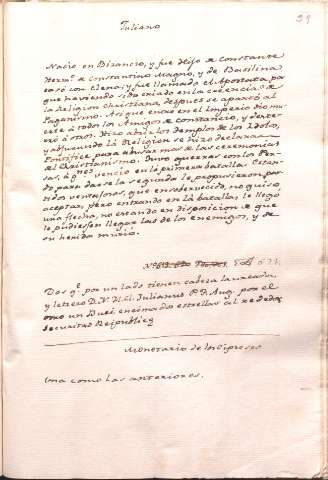 39
Juliano
Nacio en Bizancio, y fue Hijo de Constante
Herm.º de Constantino Magno, y de Basilina
casó con Elena; y fue llamado el Apostata, por
que haviendo sido criado en la creencia de
la Religion Christiana, despues se aparto al
Paganismo. Asi que entró en el Imperio dio mu-
erte a todos los Amigos de Constancio, y dester-
ró a otros. Hizo abrir los Templos de los Idolos,
y abjurando la Religion se hizo declarar
Pontifice para abusar mas de las ceremonias
del Christianismo. Tuvo guerras con los Per-
sas, a q.nes vencio en la primera batalla. Estan-
do para darse la segunda le propusieron par-
tidos ventajosos, que ensobervecido, no quiso
aceptar, pero entrando en la batalla, le llegó
una flecha, no estando en disposicion de que
le pudiesen llegar las de los enemigos, y de
su herida murió.
Dos q.e por un lado tienen cabeza laureada,
y letrero D. N. Fl. Cl. Julianus P. F. Aug. por el
otro un Buei encima dos estrellas al rededor
Securitas Reipublicę
Monetario de los Cipreses
Una como las anteriores.